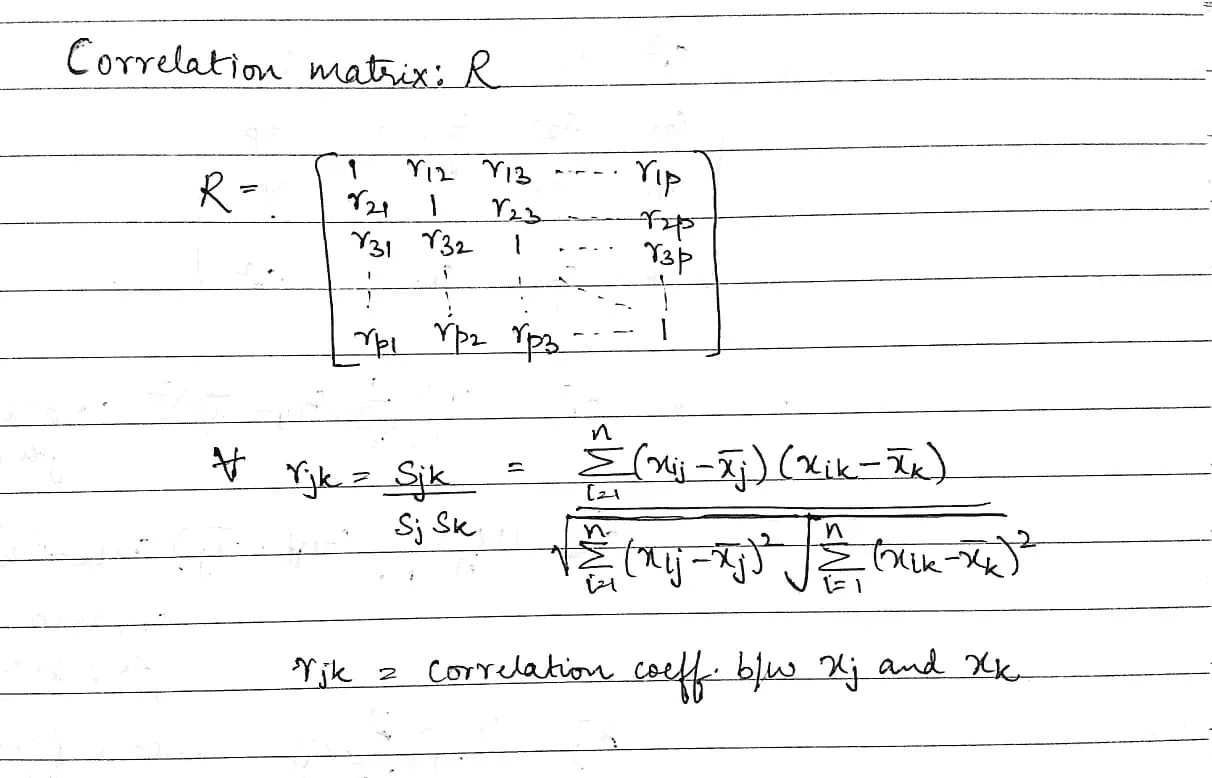 Correlation matrix: R
R = [ 1 r12 r13 ----- r1p
r21 1 r23 ----- r2p
r31 r32 1 ---- r3p
⋮ ⋮ ⋮ ⋱ ⋮
rp1 rp2 rp3 ---- 1 ]
∀ rjk = Sjk / (Sj Sk) = Σ_{i=1}^{n} (xij - x̄j) (xik - x̄k) / ( √(Σ_{i=1}^{n} (xij - x̄j)²) √(Σ_{i=1}^{n} (xik - x̄k)²) )
rjk = correlation coeff. b/w xj and xk